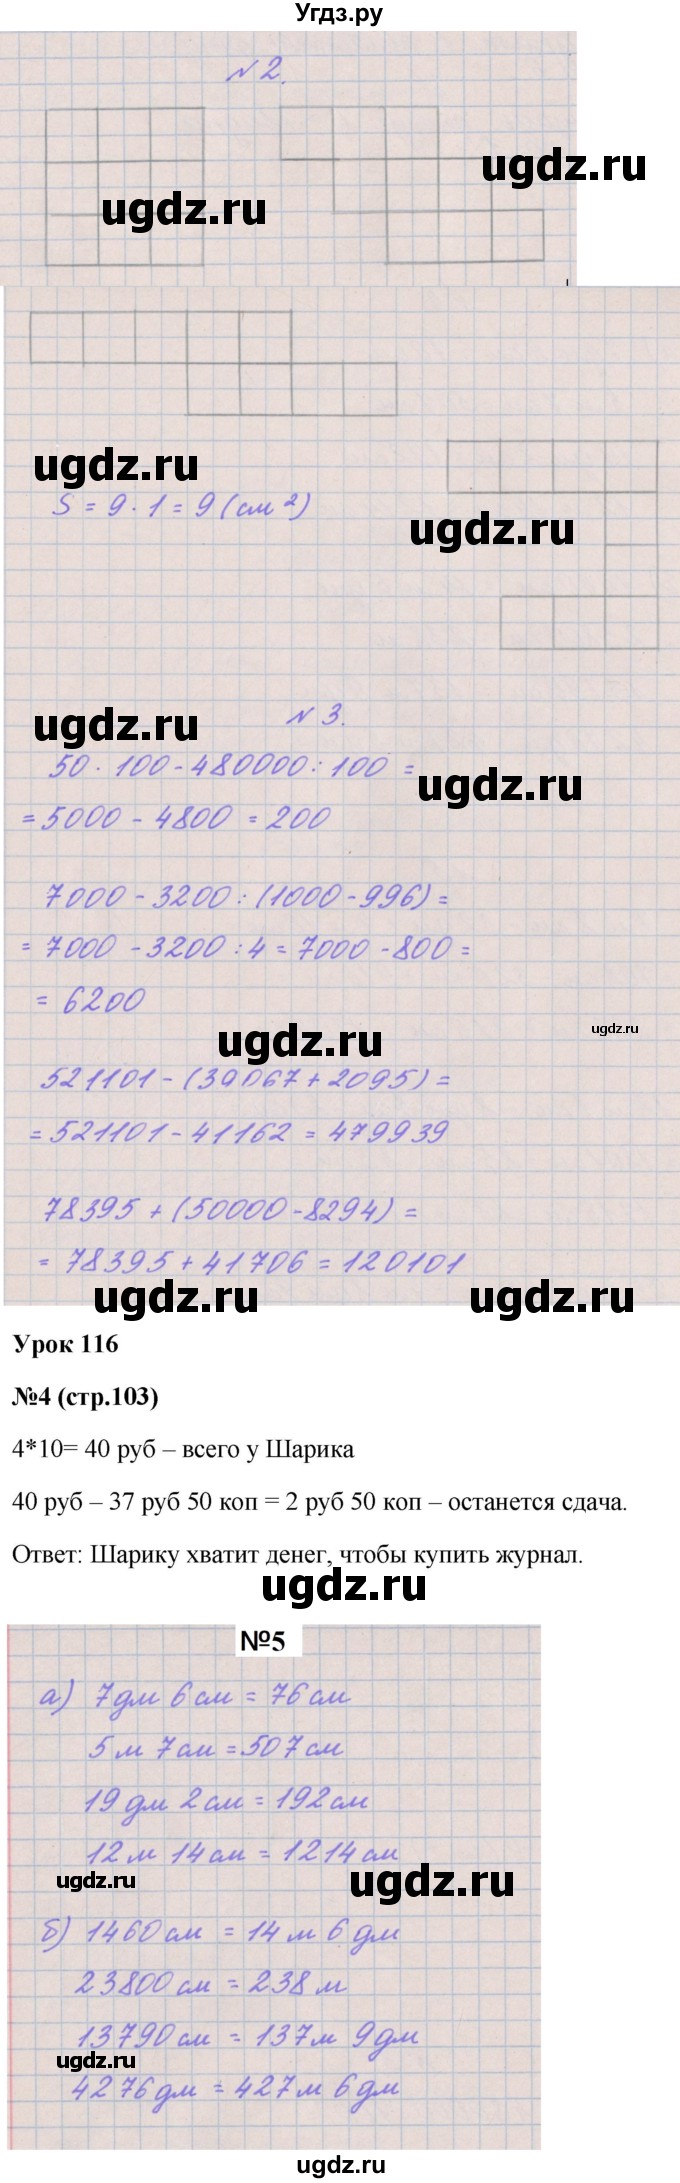 Угдз.ру
№ 2.
ugdz.ru
ugdz.ru
ugdz.ru
S = 9 · 1 = 9 (см²)
ugdz.ru
ugdz.ru
№ 3.
50 · 100 - 480000 : 100 =
ugdz.ru
= 5000 - 4800 = 200
7000 - 3200 : (1000 - 996) =
= 7000 - 3200 : 4 = 7000 - 800 =
= 6200
ugdz.ru
ugdz.ru
521101 - (39067 + 2095) =
= 521101 - 41162 = 479939
78395 + (50000 - 8294) =
= 78395 + 41706 = 120101
ugdz.ru
ugdz.ru
Урок 116
№4 (стр.103)
4*10= 40 руб – всего у Шарика
40 руб – 37 руб 50 коп = 2 руб 50 коп – останется сдача.
Ответ: Шарику хватит денег, чтобы купить журнал.
ugdz.ru
№5
а) 7 дм 6 см = 76 см
5 м 7 см = 507 см
19 дм 2 см = 192 см
12 м 14 см = 1214 см
ugdz.ru
ugdz.ru
б) 1460 см = 14 м 6 дм
23800 см = 238 м
13790 см = 137 м 9 дм
ugdz.ru
4276 дм = 427 м 6 дм
ugdz.ru